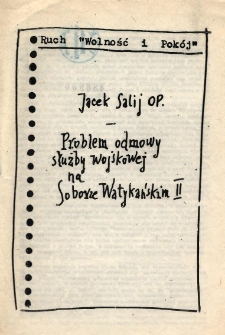 Ruch "Wolność i Pokój"
Jacek Salij OP.
—
Problem odmowy
służby wojskowej
na
Soborze Watykańskim II